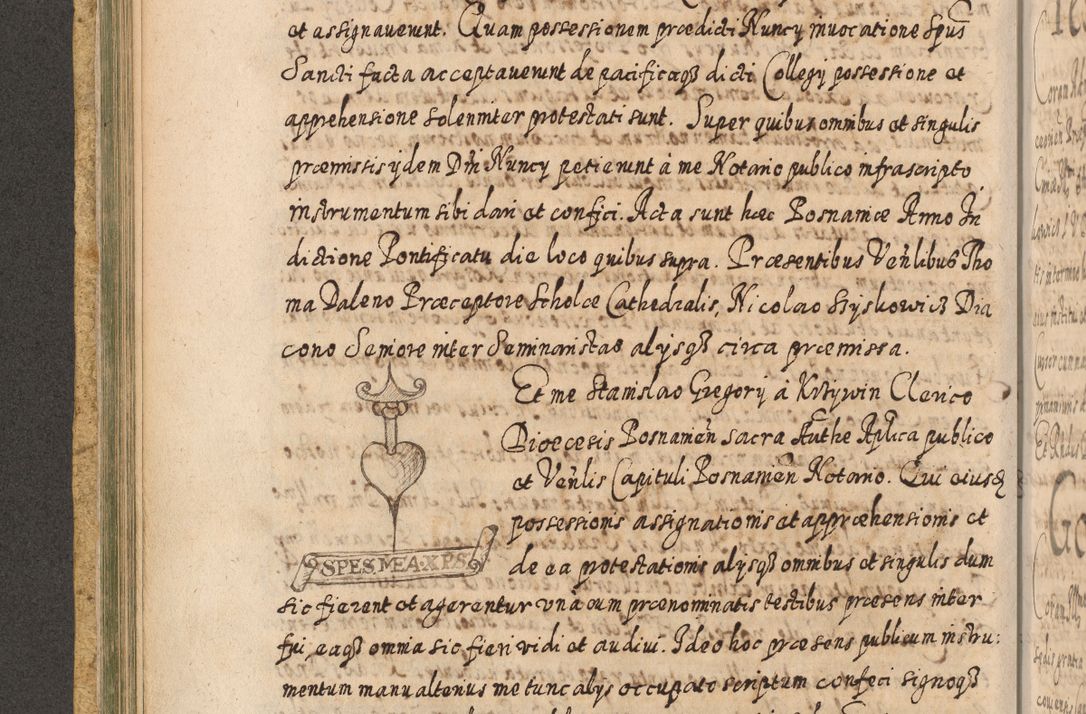 et assignaverunt. Quam possessionem prædicti Nuncy invocatione Spūs
Sancti facta acceptaverunt de pacificaq3 dicti Collegy possessione et
apprehensione solenniter protestati sunt. Super quibus omnibus et singulis
præmissis ijdem Dn̄i Nuncy petierunt à me Notario publico infrascripto
instrumentum sibi dari et confici. Acta sunt hæc Posnaniæ Anno In
dictione Pontificatu die loco quibus supra. Præsentibus Ven̄libus Tho
ma Daleno Præceptore Scholæ Cathedralis, Nicolao Szyskowic3 Dia
cono Seniore inter Seminaristas alysq3 circa præmissa.
Et me Stanislao Gregory à Krzywin Clerico
Dioecesis Posnanien̄ sacra Authe Aplica publico
et Ven̄lis Capituli Posnanien̄ Notario. Qui eiusq3
possessionis assignationis et appræhensionis et
SPES MEA XPS
de ea protestationis alysq3 omnibus et singulis dum
sic fierent et agerentur unà cum prænominatis testibus præsens inter
fui, eaq3 omnia sic fieri vidi et audivi. Ideo hoc præsens publicum instru:
mentum manu alterius me tunc alys occupato scriptum confeci signoq3